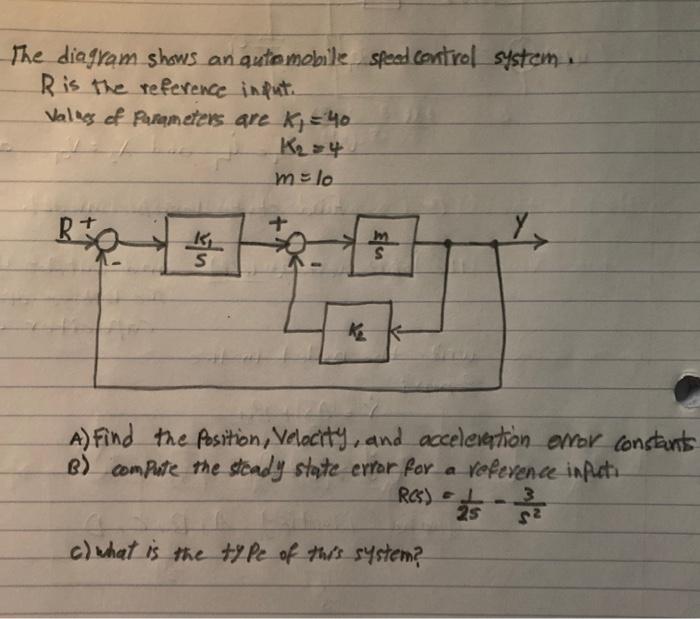 The diagram shows an automobile speed control system.
R is the reference input.
Values of Parameters are K₁ = 40
K₂ = 4
m = 10
R + K₁/S + m/s Y
- -
K₂
A) Find the Position, Velocity, and acceleration error constants
B) compute the steady state error for a reference input.
R(s) = 1/2s - 3/s²
c) what is the type of this system?